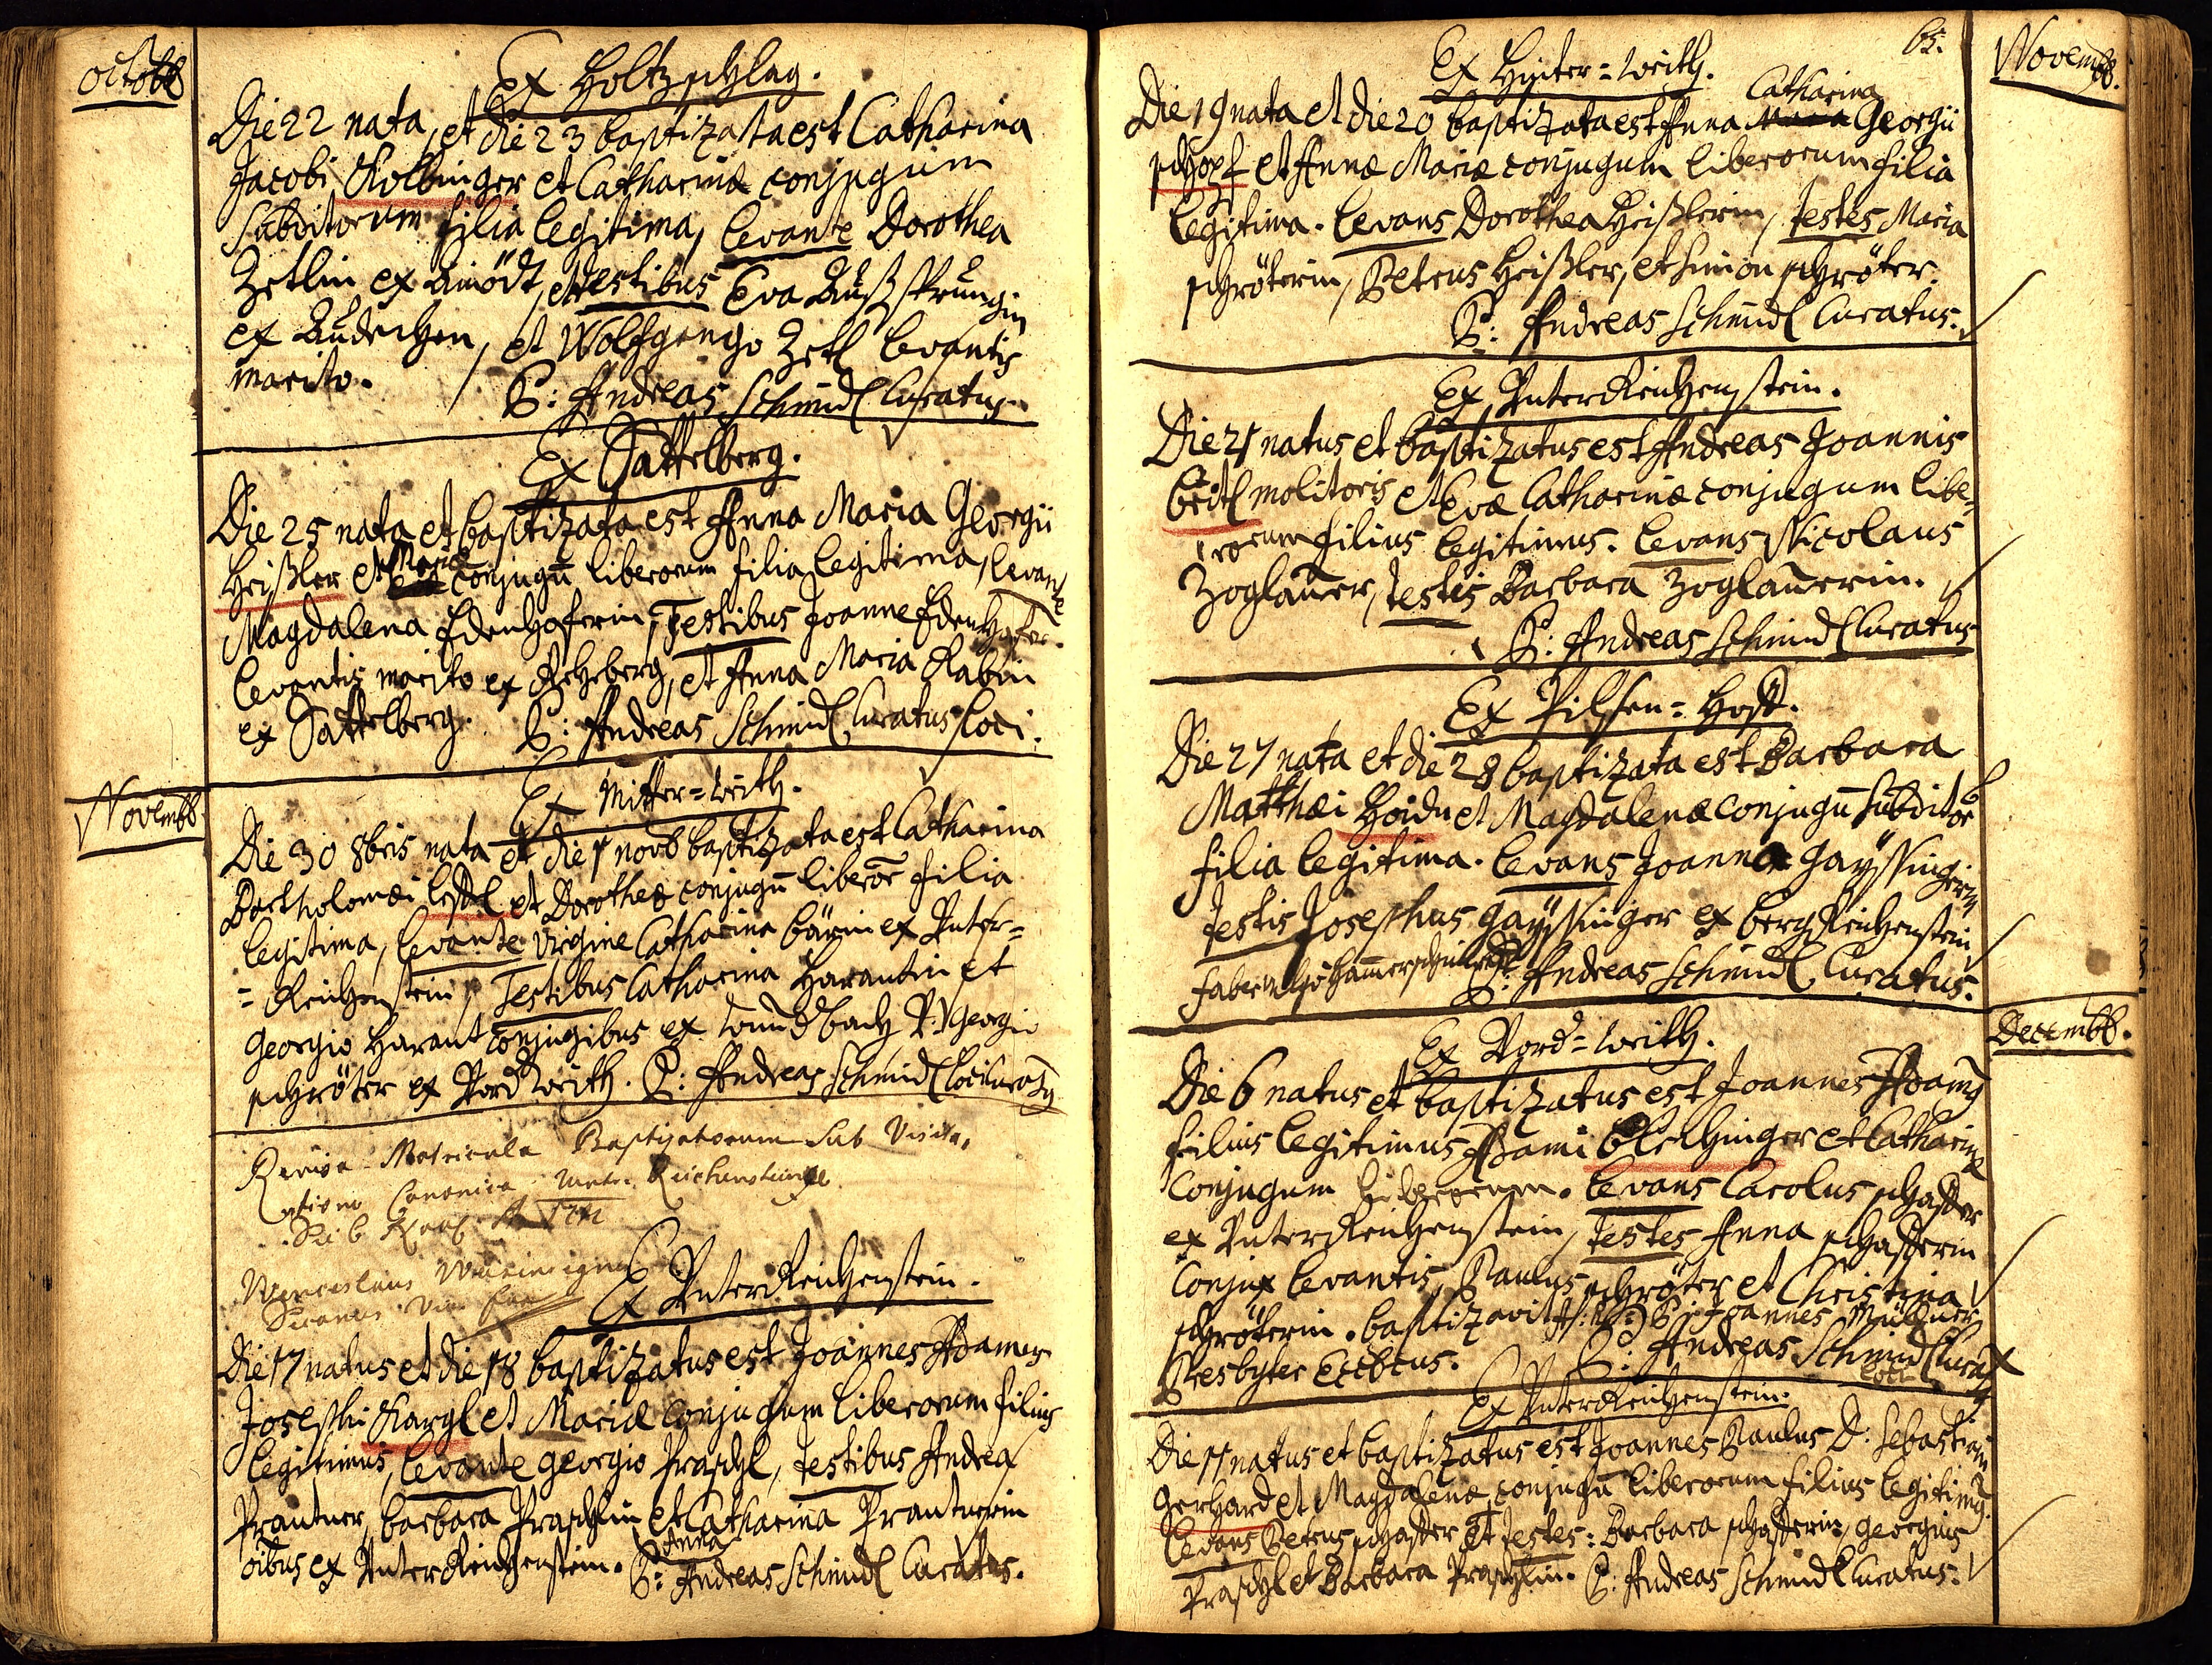 Octobb
Ex Holtzschlag.
Die 22 nata, et die 23 baptizata est Catharina
Jacobi Kolbinger et Catharinæ conjugum
subditorum filia legitima, levante Dorothea
Zetlin ex Ainödt, testibus Eva Außsprungin
ex, et Wolfgango Zetl levantis
marito.
P: Andreas Schmidl Curatus.
Ex Sattelberg.
Die 25 nata et baptizata est Anna Maria Georgii
Heißler et Mariæ conjugū liberorum filia legitima, levante
Magdalena Edenhoferin, Testibus Joanne Edenhofer
levantis marito ex Rehberg, et Anna Maria Rabin
ex Sattelberg. P: Andreas Schmidl Curatus loci.
Novembb.
Ex Mitter=weith.
Die 30 8bris nata et die 1 novb baptizata est Catharina
Bartholomæi et Dorotheæ conjugū liberor filia
legitima, levante Virgine Catharina Bärin ex Unter=
=Reichenstein, Testibus Catharina Harantin et
Georgio Harant conjugibus ex bach Georgio
schröter ex Vord weith. P: Andreas Schmidl loci Curatq
Matricula Baptizatorum sub Visita,
atione Canonica Reichensteinii
Wenceslaus
Decanus
Ex Unter Reichenstein.
Die 17 natus et die 18 baptizatus est Joannes Adamus
Josephi Kargl et Mariæ conjugum liberorum filius
legitimus, levante Georgio Praschl, testibus Andrea
Prantner, Barbara Praschlin et Catharina Prantnerin
Anna
oibus ex Unter Reichenstein. P: Andreas Schmidl Curatus.
65.
Novembb.
Ex Hinter=weith.
Catharina
Die 19 nata et die 20 baptizata est Anna Maria Georgii
schopf et Annæ Mariæ conjugum liberorum filia
legitima. levans Dorothea Heißlerin, testes Maria
schröterin, Petrus Heißler, et Simon schröter.
P: Andreas Schmidl Curatus.
Ex Unter Reichenstein.
Die 21 natus et baptizatus est Andreas Joannis
beitl molitoris et Evæ Catharinæ conjugum libe,
rorum filius legitimus. levans Nicolaus
Zoglauer, testis Barbara Zoglauerin.
P: Andreas Schmidl Curatus
Ex Pilsen=Hoff.
Die 27 nata et die 28 baptizata est Barbara
Matthæi Hoidn et Magdalenæ conjugū subditor
filia legitima. levans Joanna Gayssingerin
testis Josephus Gayssinger ex berg Reichenstein
faber vulgo Hammerschmidt P: Andreas Schmidl Curatus.
Decembb.
Ex Vord=weith.
Die 6 natus et baptizatus est Joannes Adamq
filius legitimus Adami blechinger et Catharinæ
Conjugum liberorum. levans Carolus schaffer
ex Unter Reichenstein, testes Anna schafferin
Conjux levantis, Paulus schröter et Christina
schröterin. baptizavit P: Joannes Müllner
Presbyter P: Andreas Schmidl Curatq
loci
Ex Unter Reichenstein.
Die 11 natus et baptizatus est Joannes Paulus D: Sebastiani
Gerhard et Magdalenæ conjugū liberorum filius legitimq.
levans Petrus schaffer et testes: Barbara schafferin, Georgius
Praschl et Barbara Praschlin. P: Andreas Schmidl Curatus.